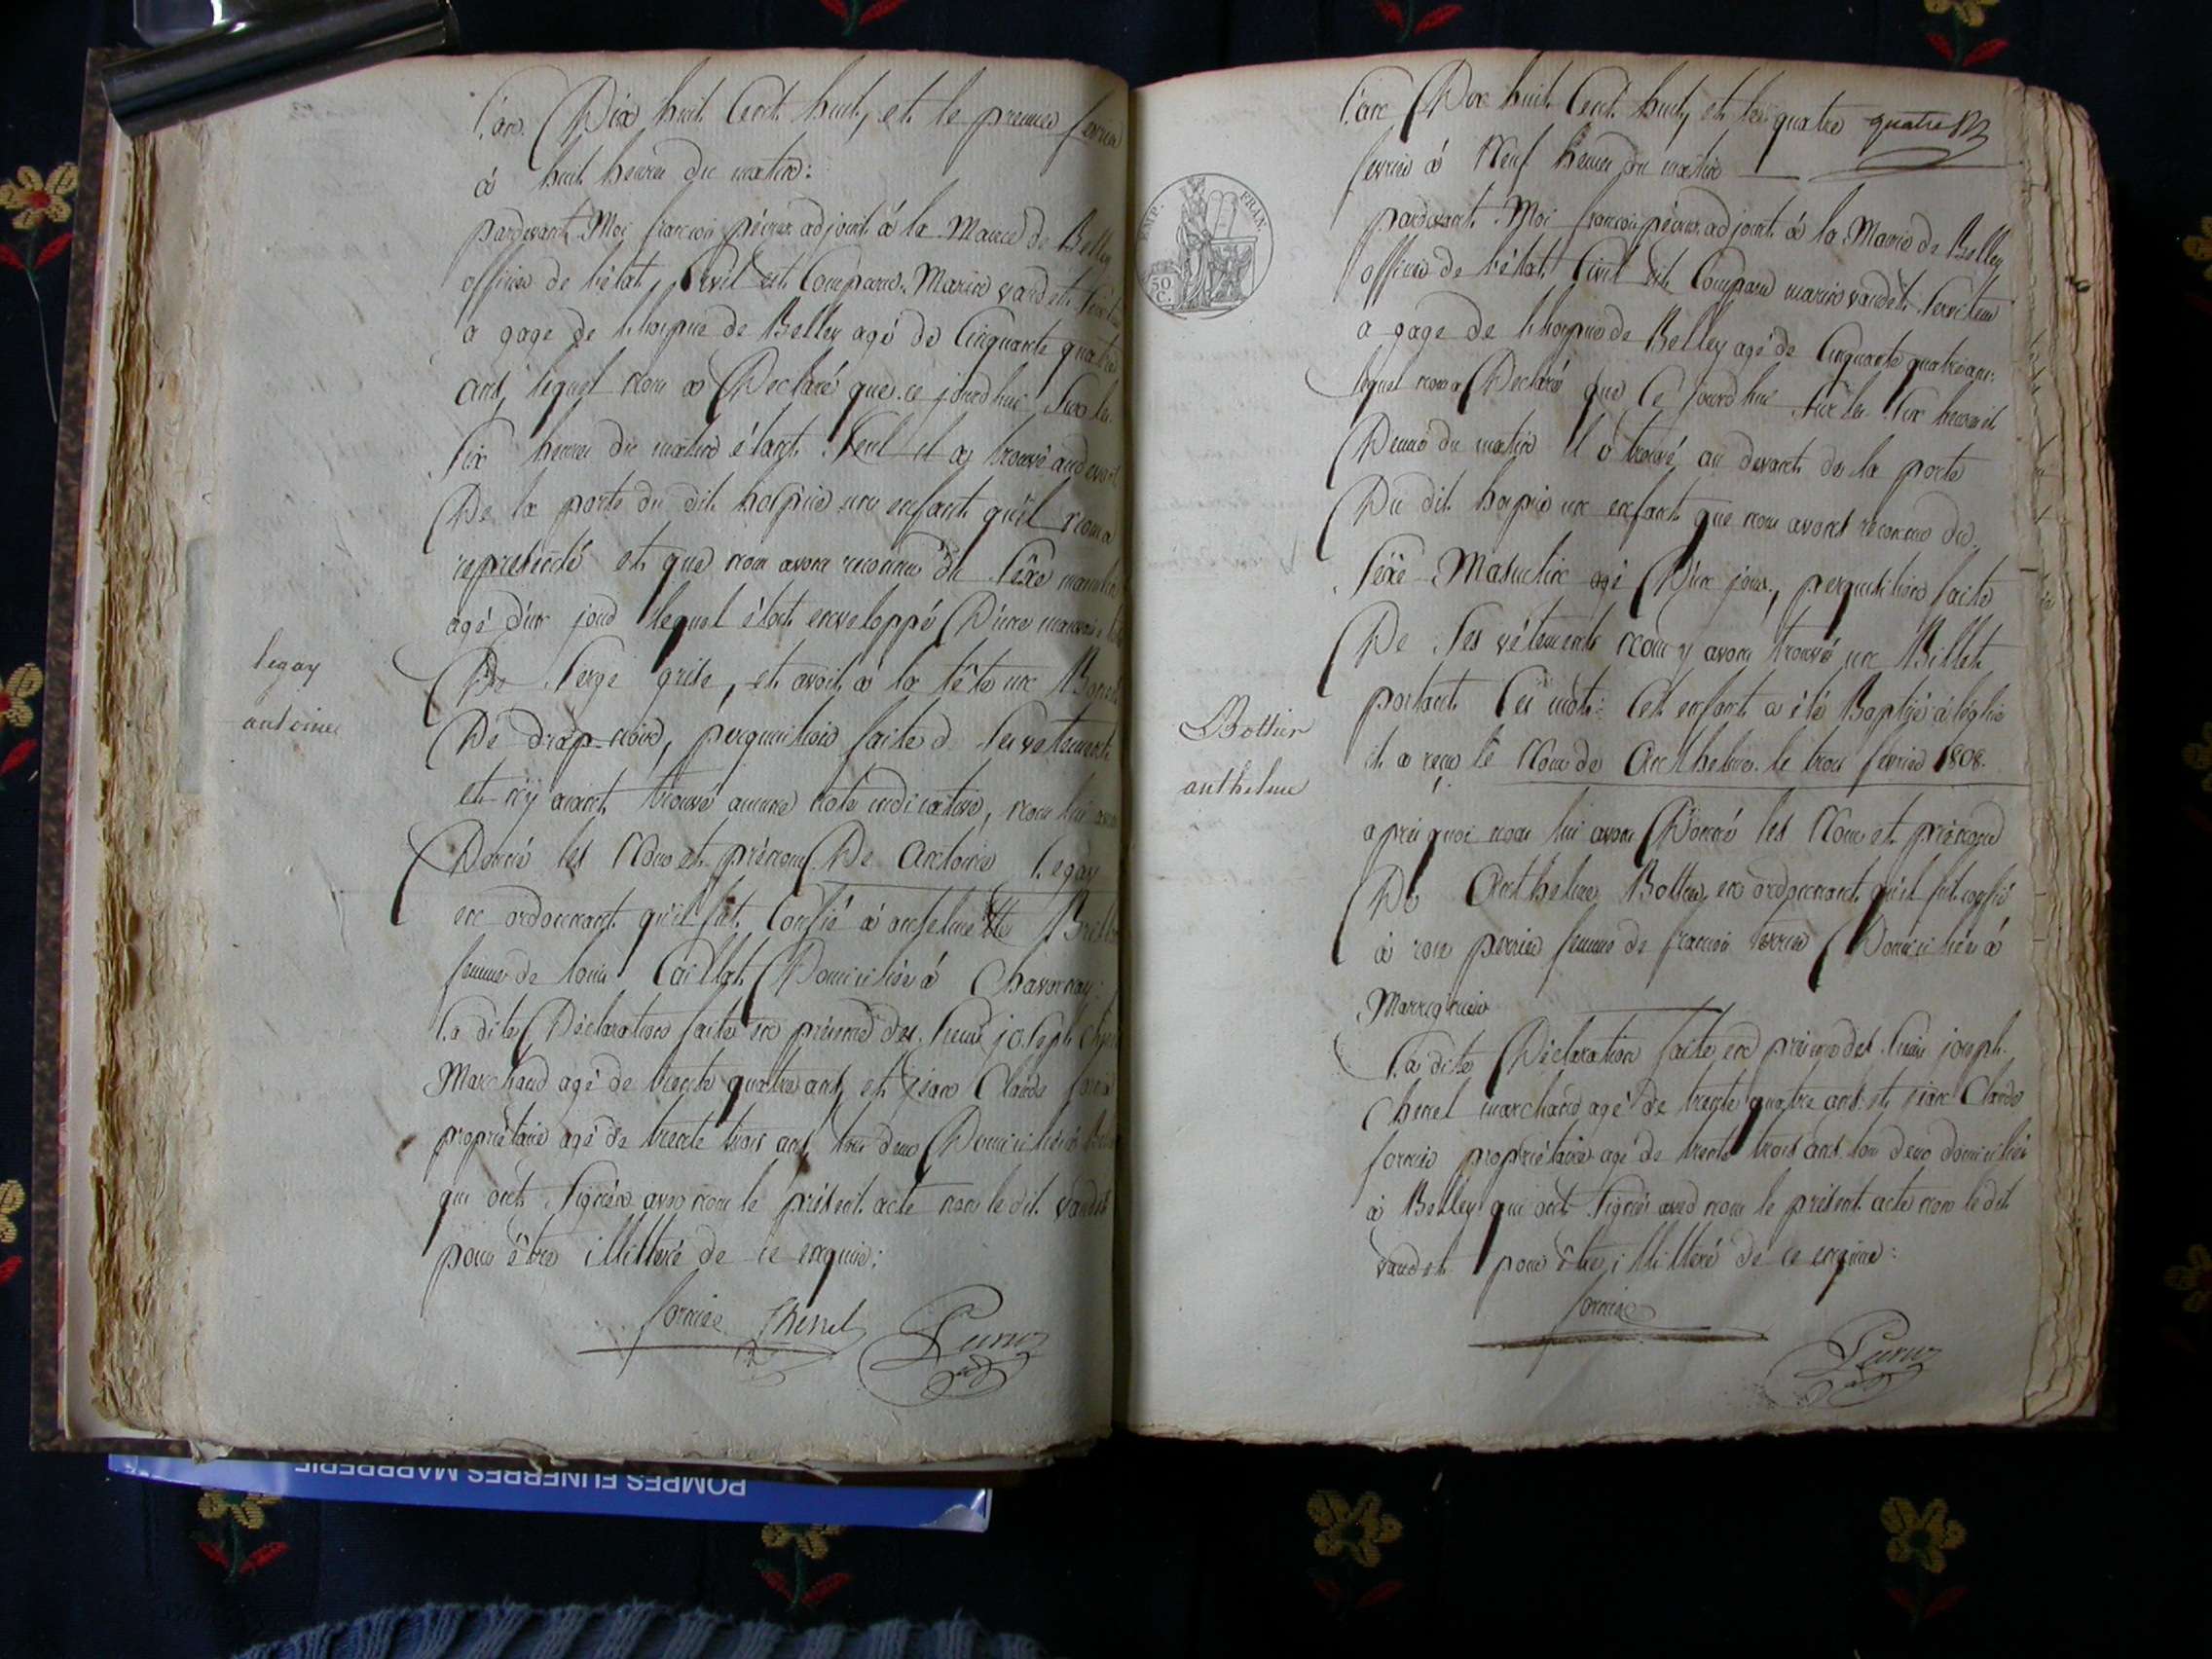 l'an Dix huit Cent huit, et le premier fevrier
à huit heures du matin:
pardevant Moi francois péruz adjoint à la Mairie de Belley
officier de l'état Civil est Comparu Marin vaudet
a gage de l'hospice de Belley agé de Cinquante quatre
ans, lequel nous a Declaré que ce jourd'hui sur les
six heures du matin étant seul il a trouvé au devant
De la porte du dit hospice un enfant qu'il nous a
representé et que nous avons reconnu du sexe masculin
agé d'un jour lequel étoit enveloppé D'une mauvaise
De serge grise, et avoit à la tête un Bonnet
De drap noir, perquisition faite de ses vetements
et n'y ayant trouvé aucune note indicative, nous lui avons
Donné les Nom et prénom De Antoine Legay
en ordonnant qu'il fut Confié à anselmette
femme de louis Caillat Domiciliée à Chavornay:
La dite Déclaration faite en présence des sieurs joseph
Marchand agé de trente quatre ans, et jean Claude
propriétaire agé de trente trois ans, tous deux Domiciliés à
qui ont signés avec nous le présent acte non le dit vaudet
pour être illittéré de ce enquis:
fornier Chenel Peruz
legay
antoine
l'an Dix huit Cent huit, et le quatre quatre
fevrier à Neuf heures du matin
pardevant Moi francois péruz adjoint à la Mairie de Belley
officier de l'état Civil est Comparu marin vaudet serviteur
a gage de l'hospice de Belley agé de Cinquante quatre ans:
lequel nous a Declaré que Ce jourd'hui sur les six heures et
Demie du matin il a trouvé au devant de la porte
Du dit hospice un enfant que nous avons reconnu du
sexe Masculin agé D'un jour, perquisition faite
De ses vêtements nous y avons trouvé un Billet
portant Ces mots: Cet enfant a été Baptisé à l'église
il a reçu le Nom de Anthelme le trois fevrier 1808.
après quoi nous lui avons Donné les Nom et prénom
De Anthelme Bottier, en ordonnant qu'il fut confié
à perrin femme de francois Domiciliée à
Marignieu
La dite Déclaration faite en présence des sieurs joseph
Chenel marchand agé de trente quatre ans et jean Claude
fornier propriétaire agé de trente trois ans tous deux domiciliés
à Belley qui ont signés avec nous le présent acte non le dit
vaudet pour être illittéré de ce enquis:
fornier
Peruz
Bottier
anthelme
EMP. FRAN.
50
C.
POMPES FUNEBRES MARBRERIE